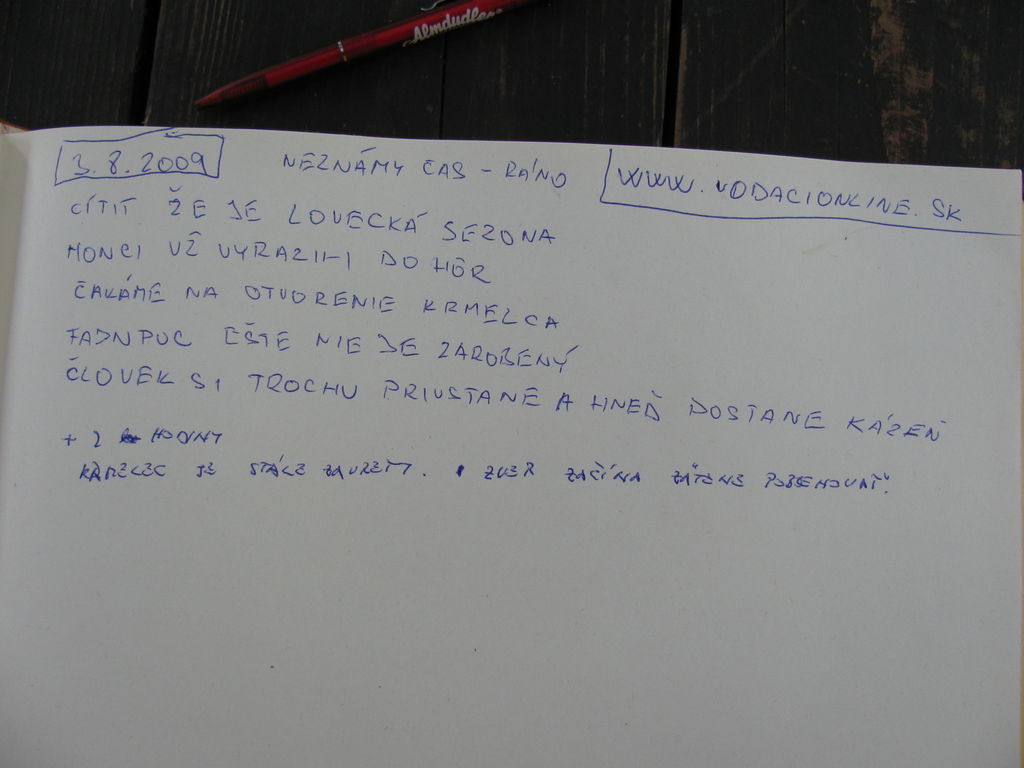 Almdudler
3.8.2009 NEZNÁMY ČAS - RÁNO WWW.VODACIONLINE.SK
CÍTIŤ ŽE JE LOVECKÁ SEZONA
HONCI UŽ VYRAZILI DO HÔR
ČAKÁME NA OTVORENIE KRMELCA
EŠTE NIE JE ZAROBENÝ
ČLOVEK SI TROCHU PRIVSTANE A HNEĎ DOSTANE KÁZEŇ
+ 2 HODINY
KRMELEC JE STÁLE ZAVRETÝ. ZVER ZAČÍNA POBEHOVAŤ.